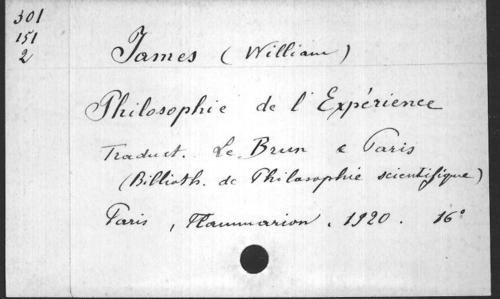 301
151
2
James (William)
Philosophie de l'Expérience
Traduct. Le Brun & Paris
(Billioth. de Philosophie scientifique)
Paris, Flammarion, 1920. 16°